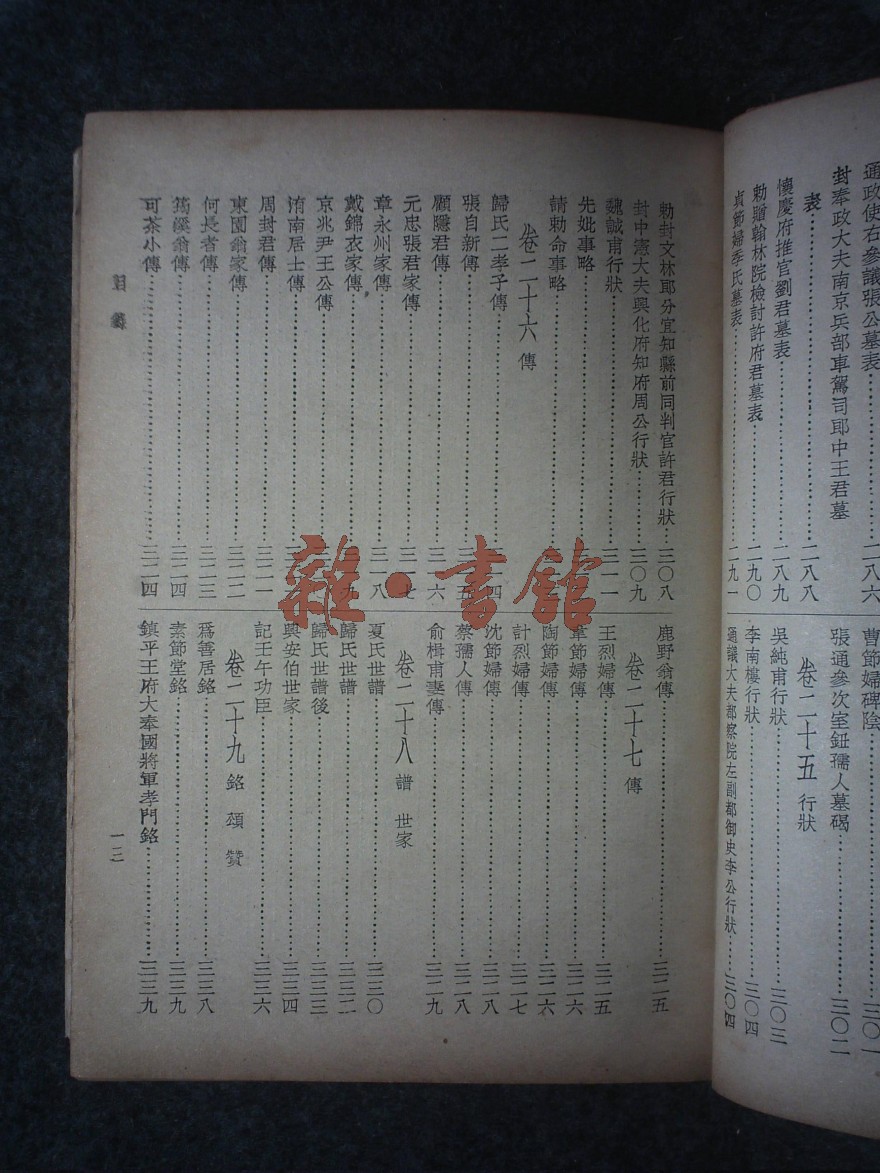 通政使右參議張公墓表……二八六
封奉政大夫南京兵部車駕司郎中王君墓
表……二八八
懷慶府推官劉君墓表……二八九
勅贈翰林院檢討許府君墓表……二九〇
貞節婦季氏墓表……二九一
曹節婦碑陰……三〇一
張通參次室鈕孺人墓碣……三〇二
卷二十五 行狀
吳純甫行狀……三〇三
李南樓行狀……三〇四
通議大夫都察院左副都御史李公行狀……三〇四
勅封文林郎分宜知縣前同判官許君行狀……三〇八
封中憲大夫興化府知府周公行狀……三〇九
魏誠甫行狀……三一一
先妣事略……
請勅命事略……
卷二十六 傳
歸氏二孝子傳……四
張自新傳……五
顧隱君傳……三一六
元忠張君家傳……三一七
章永州家傳……三一八
戴錦衣家傳……九
京兆尹王公傳……
洧南居士傳……
周封君傳……三二一
東園翁家傳……三二二
何長者傳……三二三
筠溪翁傳……三二四
可茶小傳……三二四
鹿野翁傳……三二五
卷二十七 傳
王烈婦傳……三二五
韋節婦傳……三二六
陶節婦傳……三二六
計烈婦傳……三二七
沈節婦傳……三二八
蔡孺人傳……三二八
俞楫甫妻傳……三二九
卷二十八 譜 世家
夏氏世譜……三三〇
歸氏世譜……三三二
歸氏世譜後……三三三
興安伯世家……三三四
記壬午功臣……三三六
卷二十九 銘 頌 贊
爲善居銘……三三八
素節堂銘……三三九
鎮平王府大奉國將軍孝門銘……三三九
目錄
一三
雜·書館